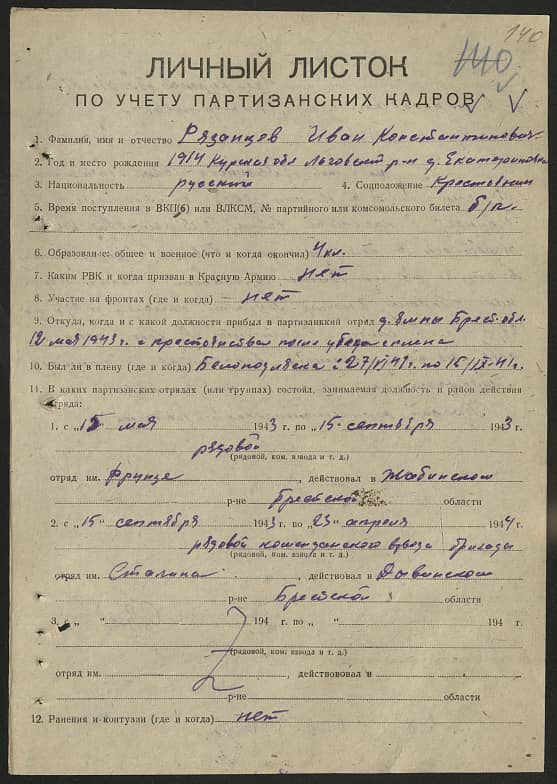 140
140
ЛИЧНЫЙ ЛИСТОК
ПО УЧЕТУ ПАРТИЗАНСКИХ КАДРОВ
1. Фамилия, имя и отчество Рязанцев Иван Константинович
2. Год и место рождения 1914 Курская обл Льговский р-н д. Екатериновка
3. Национальность русский 4. Соцположение Крестьянин
5. Время поступления в ВКП(б) или ВЛКСМ, № партийного или комсомольского билета б/п.
6. Образование: общее и военное (что и когда окончил) 4 кл.
7. Каким РВК и когда призван в Красную Армию нет
8. Участие на фронтах (где и когда) нет
9. Откуда, когда и с какой должности прибыл в партизанский отряд д. Брест. обл.
12 мая 1943 г. с крестьянства после из плена
10. Был ли в плену (где и когда) Белоподляска с 27/VI 41 г. по 15/IX-41 г.
11. В каких партизанских отрядах (или группах) состоял, занимаемая должность и район действия
отряда:
1. с „ 15 мая 1943 г. по „ 15 сентября 1943 г.
рядовой
(рядовой, ком. взвода и т. д.)
отряд им. Фрунзе, действовал в Жабинском
р-не Брестской области
2. с „ 15 " сентября 1943 г. по „ 23 " апреля 1944 г.
рядовой комендантского взвода бригады
(рядовой, ком. взвода и т. д.)
отряд им. Сталина, действовал в Дывинском
р-не Брестской области
3. с „ " 194 г. по „ " 194 г.
(рядовой, ком. взвода и т. д.)
отряд им. , действововал в
р-не области
12. Ранения и контузии (где и когда) нет